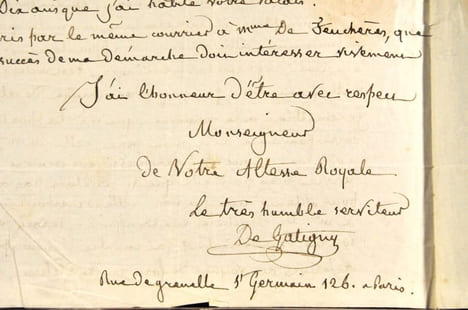 Dix ans que j'ai habité votre Palais.
ris par le même courrier à Mme De Feuchères, que
succès de ma démarche doit intéresser vivement
J'ai l'honneur d'être avec respect
Monseigneur
de Votre Altesse Royale
Le très humble serviteur
De Gatigny
Rue de grenelle St Germain 126. a Paris.